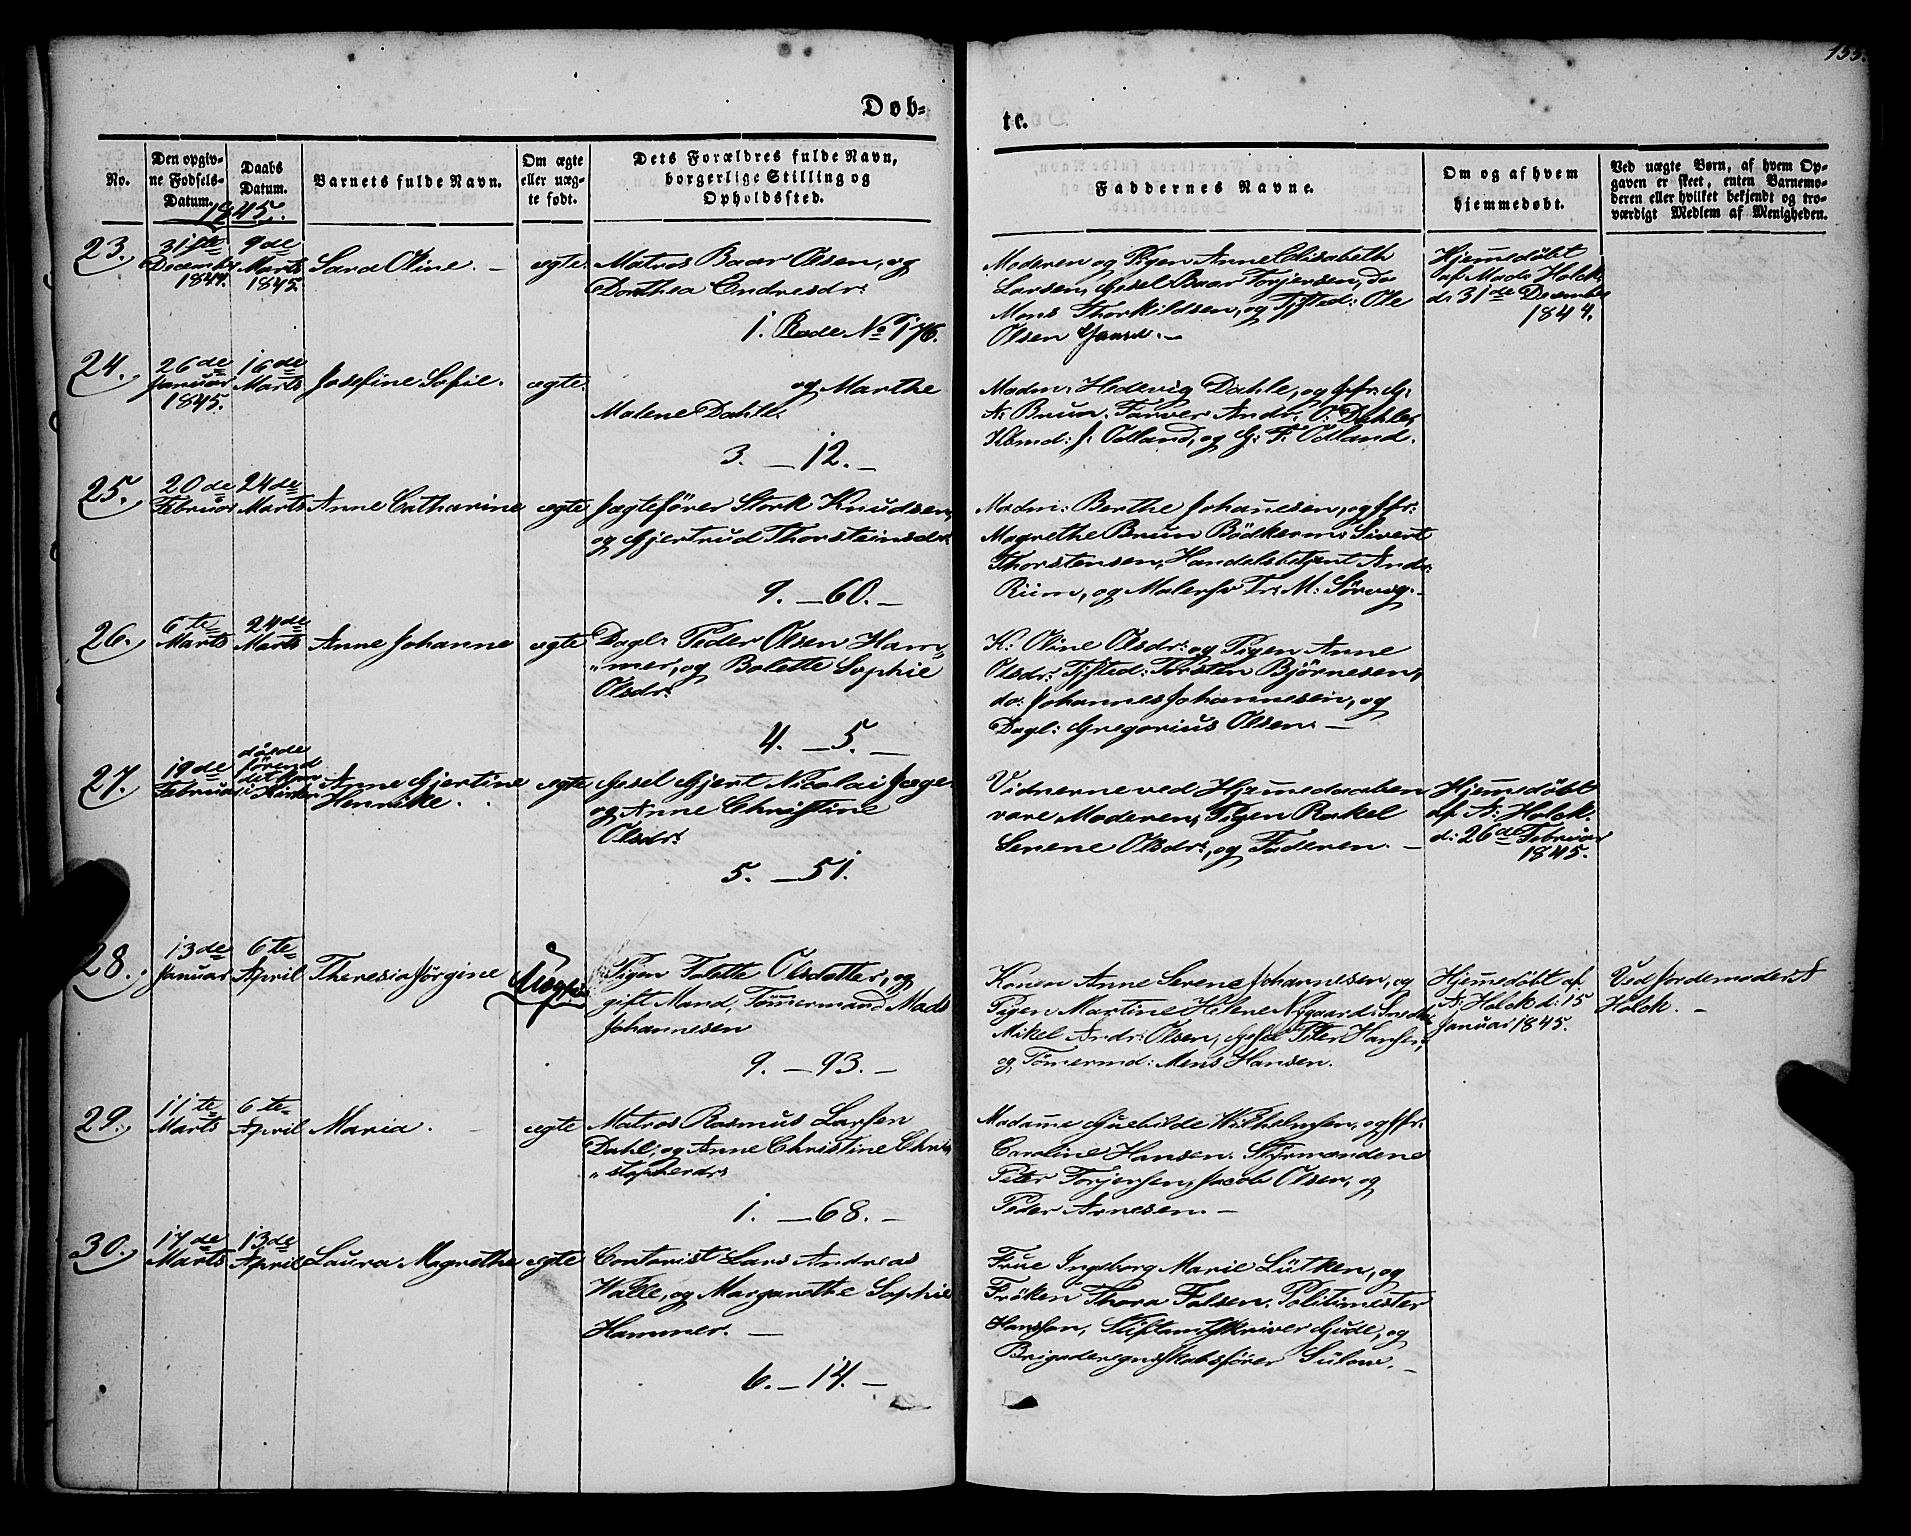 155.
Døb-
te.
No.
Den opgiv-
ne Fødsels-
Datum.
Daabs
Datum.
Barnets fulde Navn.
Om ægte
eller uæg-
te født.
Dets Forældres fulde Navn,
borgerlige Stilling og
Opholdssted.
Faddernes Navne.
Om og af hvem
hjemmedøbt.
Ved uægte Børn, af hvem Op-
gaven er skeet, enten Barnemo-
deren eller hvilket bekjendt og tro-
værdigt Medlem af Menigheden.
1845.
23.
31te
December
1844.
9de
Marts
1845
Sara Oline. —
ægte.
Matros Baar Olsen, og
Dorthea Endresdr:
1. Rode No 176.
Moderen og Pigen Anne Elisabeth
Larsen, Gesel Baar Torjersen, Do
Mons Thorkildsen, og Tjsted: Ole
Olsen Gaard. —
Hjemedöbt
af Mads Holck.
d: 31de December
1844.
24.
26de
Januar
1845.
16de
Marts
Josefine Sofie.
ægte.
og Marthe
Malene Dahl.
3. — 12. —
Madm: Hedevig Dahle, og Jfr: G:
A: Brun. Farver Andr: O: Dahle,
Kbmd: J: Odland, og G: F: Odland.
25.
20de
Februar
24de
Marts
Anne Catharine
ægte
Jægtefører Stork Knudsen,
og Gjertrud Thorsteinsdr:
9. — 60. —
Madm: Berthe Johanesen, og Jfr:
Magrethe Brun Bödkerm: Sivert
Thorstensen, Handelsbetjent Andr:
Riim, og Malersv Tr: M: Sørvig. —
26.
6te
Marts
24de
Marts
Anne Johanne
ægte
Dagl: Peder Olsen Ham-
"mer, og Bolette Sophie
Olsdr:
4. — 5. —
K: Oline Olsdr: og Pigen Anne
Olsdr: Tjsted: Torsten Björnesen,
do: Johannes Johannesen, og
Dagl: Gregorius Olsen. —
27.
19de
Februar
døde
förend
det kom
i Kirken
Anne Gjertine
Henrikke.
ægte
Gesel Gjert Nicolai Jæge
og Anne Christine
Olsdr:
5. — 51.
Vidnerne ved Hjemedaaben
vare Moderen, Pigen Rakel
Serene Olsdr:, og Faderen. —
Hjemedöbt
af A: Holck.
d: 26de Februar
1845.
28.
13de
Januar
6te
April
Theresia Jørgine
Uægte
Pigen Talette Olsdatter, og
gift Mand, Tømermand Mads
Johannesen
9. — 93. —
Konen Anne Serene Johannesen, og
Pigen Martine Helene Nygaard: Snedk:
Mikel Andr: Olsen, Gesel Peter Hansen,
og Tömermd: Mons Hansen.
Hjemedöbt af
A: Holck d: 15
Januar 1845.
Ved Jordemoder A
Holck. —
29.
11te
Marts
6te
April
Maria.
ægte
Matros Rasmus Larsen
Dahl, og Anne Christine Chri-
"stopherdr:
1. — 68. —
Madame Guebilde Wilhelmsen, og Jfr:
Caroline Hansen. Styrmændene
Peter Torjersen, Jacob Olsen, og
Peder Arnesen. —
30.
17de
Marts
13de
April
Laura Magrethe
ægte
Contorist Lars Andreas
Walle, og Margarethe Sophie
Hammer. —
6. — 14. —
Frue Ingeborg Marie Lütken, og
Frøken Thora Falsen. Politimester
Hansson, Stiftamtskriver Gude, og
Brigaderegnskabsfører Sülow. —